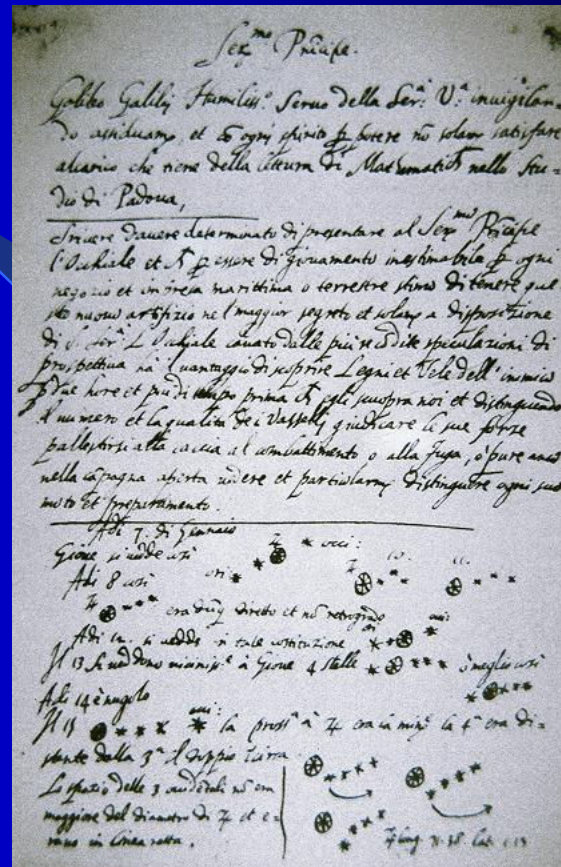 Ser.mo Prīcipe.
Galileo Galilej Humiliss.o Servo della Ser.a V.a invigilan-
do assiduam.e, et cō ogni spirito p potere nō solam satisfare
alcarico che tiene della lettura di Mathematich nello Stu-
dio di Padova,
Scrivere davere determinato di presentare al Ser.mo Prīcipe
l'Occhiale et p essere di giovamento inestimabile p ogni
negozio et impresa marittima o terrestre stimo di tenere que-
sto nuovo artifizio ne l maggior segreto et solam a disposizione
di S. Ser.a L Occhiale cavato dalle più recōdite speculazioni di
prospettiva ha l vantaggio di scoprire Legni et Vele dell' inimico
p due hore et più di tempo prima ch egli scuopra noi et distinguendo
il numero et la qualita de i Vasselli giudicare le sue forze
pallestirsi alla caccia al combattimento o alla fuga, o pure anco
nella cāpagna aperta vedere et particolarm distinguere ogni suo
moto et preparamento.
Adi 7. di Gennaio
Gioue si uedde cosi ori: * occi:
Adi 8 cosi
era dūq diretto et nō retrogrado
Adi 12. si uedde i tale costituzione
Il 13 si ueddono minimiss.e à Gioue 4 stelle ò meglio cosi
Adi 14 è nugolo
Il 15 la pross.a à ♃ era la min.e la 4.a era di-
stante dalla 3.a il doppio circa
Lo spazio delle 3 occidētali nō era
maggiore del diametro di ♃ et e-
rano in linea retta.
♃ long. 71.38 Lat. 1.13